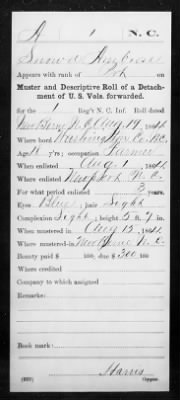 A 1 N. C.
Appears with rank of
Muster and Descriptive Roll of a Detach-
ment of U. S. Vols. forwarded.
for the 1 Reg't N. C. Inf. Roll dated
New Berne N. C. Aug 19, 1864.
Where born Washington Co. N.C.
Age 18 y'rs; occupation Farmer
When enlisted Aug 1, 1864.
Where enlisted N. C.
For what period enlisted 3 years.
Eyes Blue; hair Light
Complexion Light; height 5 ft. 7 in.
When mustered in Aug 12, 1864.
Where mustered in New Berne N. C.
Bounty paid $ 100; due $ 300 100
Where credited
Company to which assigned
Remarks:
Book mark:
Harris
Copyist.